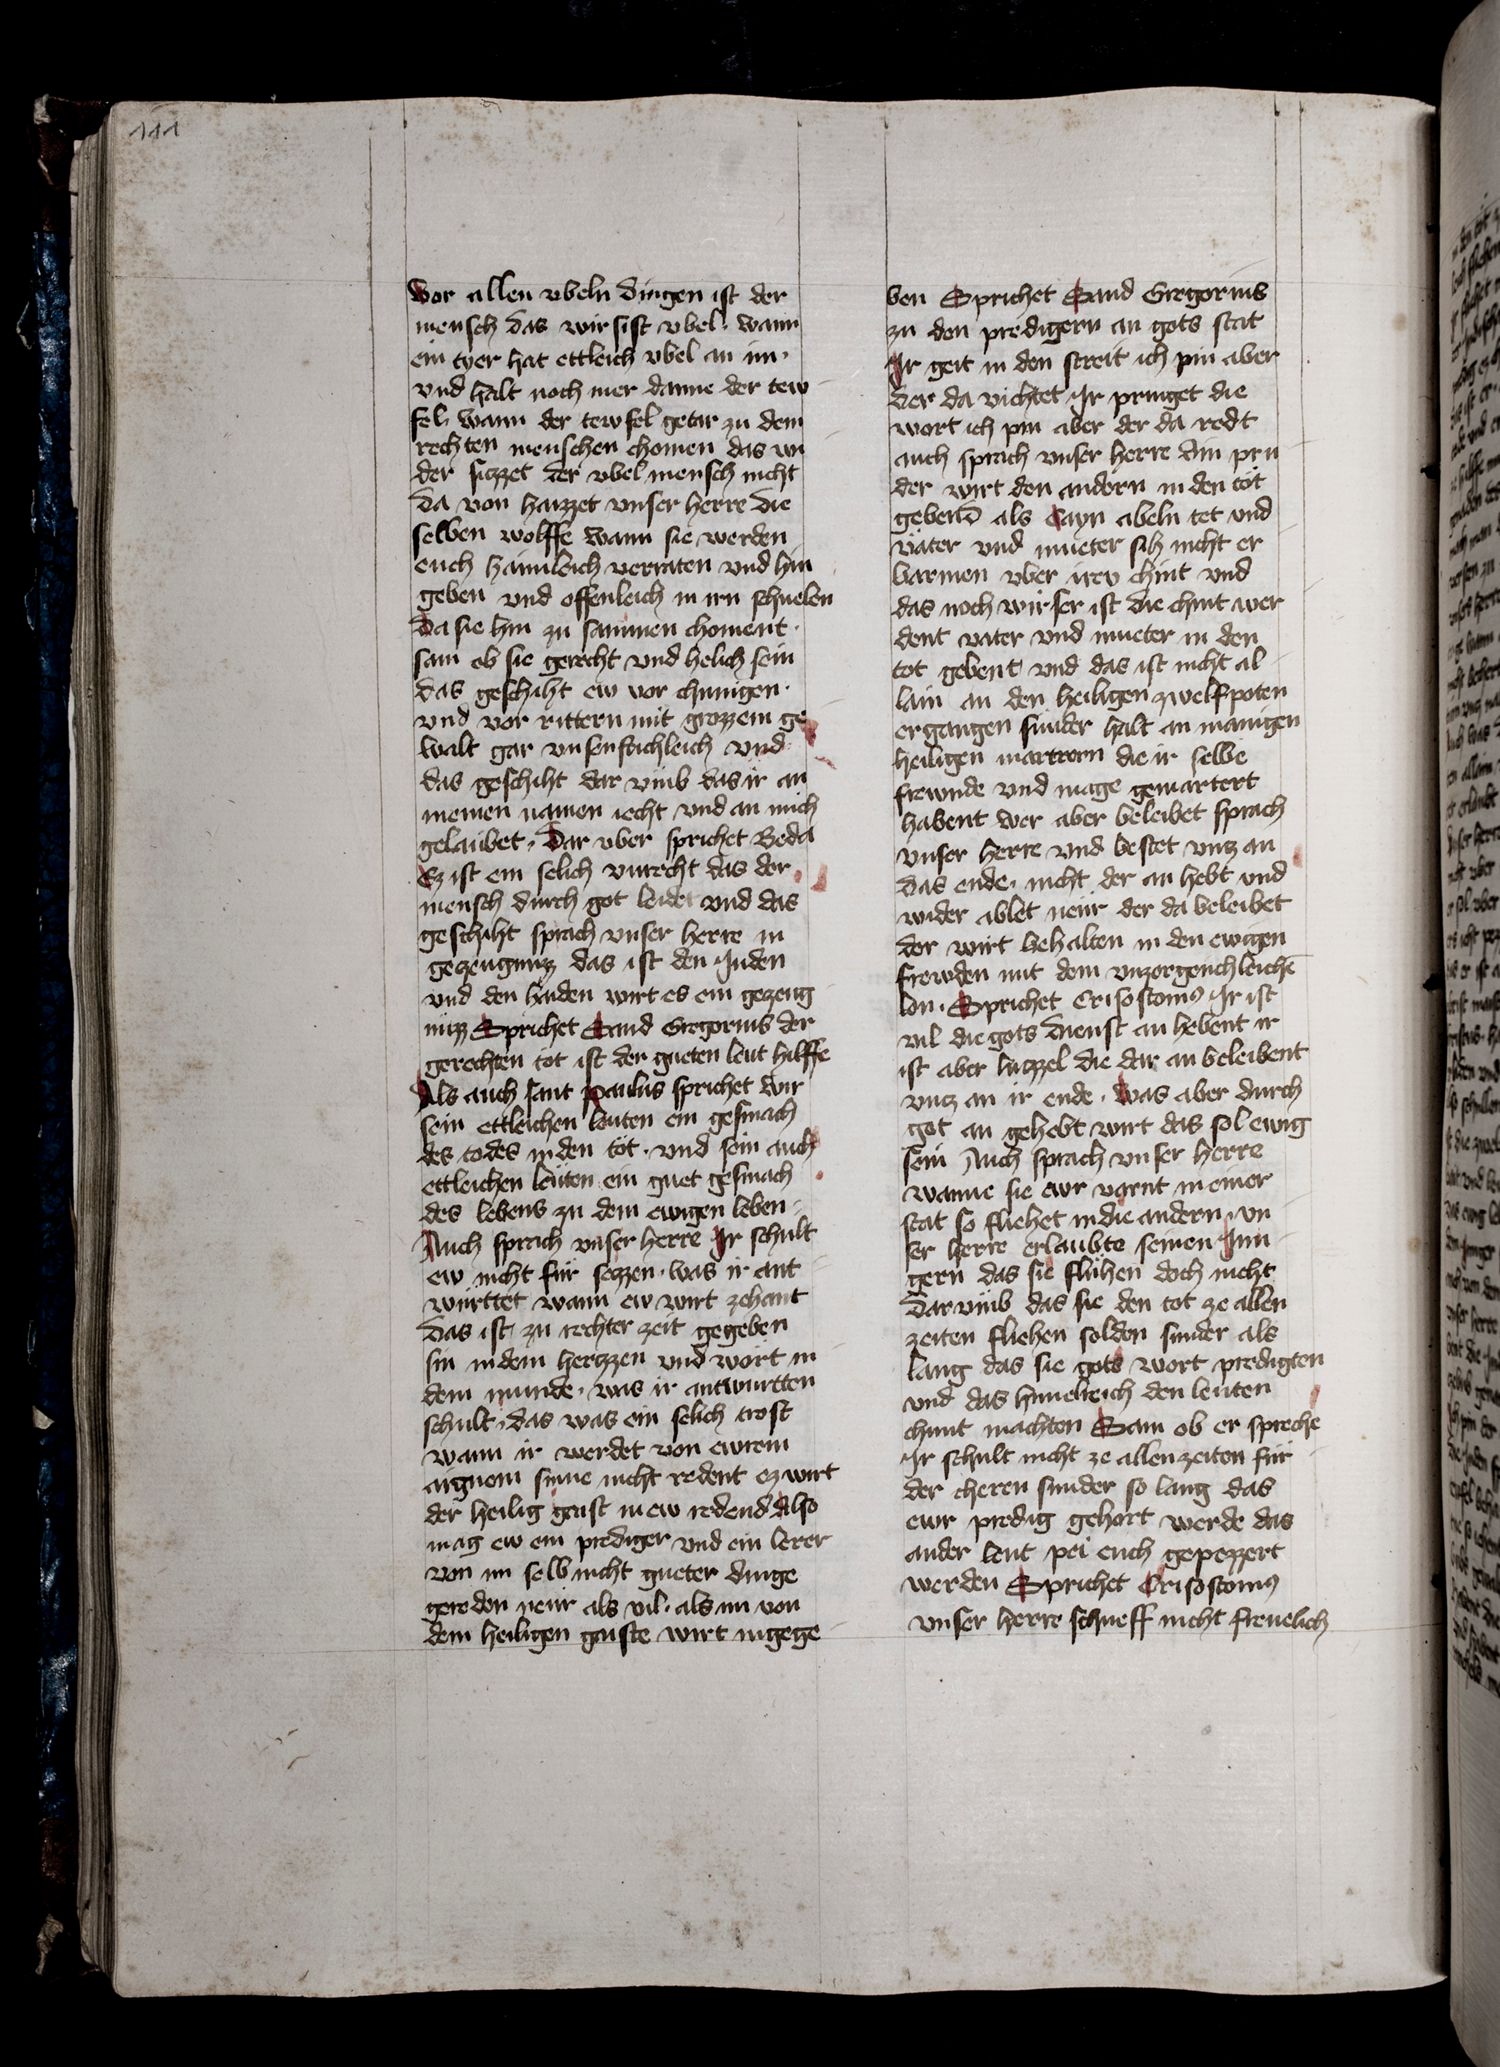 111
Vor allen vbeln dingen ist der
mensch das wirsist vbel · wann
ein tyer hat ettleich vbel an im ·
vnd halt noch mer danne der tew
fel · wann der tewfel getar zu dem
rechten menschen chomen das vn
der siczzet der vbel mensch nicht
da von haizzet vnser herre die
selben wolffe wann sie werden
euch haimleich verraten vnd hin
geben vnd offenleich in irn schuelen
da sie hin zu sammen choment ·
sam ob sie gerecht vnd helich sein
das geschiht ew vor chunigen ·
vnd vor rittern mit grozzem ge
walt gar vnsenftichleich vnd
das geschiht dar vmb das ir an
meinen namen iecht vnd an mich
gelaubet · Dar vber sprichet Beda
Ez ist ein selich vnrecht das der
mensch durch got leidet vnd das
geschiht sprach vnser herre in
gezeugnuzz das ist den Juden
vnd den haiden wirt es ein gezeug
nuzz Sprichet Sand Gregorius der
gerechten tot ist der gueten leut hilffe
Als auch sant paulus sprichet wir
sein ettleichen leuten ein gesmach
des todes in den tot · vnd sein auch
ettleichen leuten ein guet gesmach
des lebens zu dem ewigen leben ·
Auch sprach vnser herre Ir schult
ew nicht für seczzen · was ir ant
württet wann ew wirt zehant
das ist zu rechter zeit gegeben
sin in dem herczzen vnd wort in
dem munde · was ir antwurtten
schult · das was ein selich trost
wann ir werdet von ewrem
aignem sinne nicht redent ez wirt
der heilig gaist in ew redend Also
mag ew ein prediger vnd ein lerer
von im selb nicht gueter dinge
gereden neur als vil · als im von
dem heiligen gaiste wirt ingege
ben Sprichet Sand Gregorius
zu den predigern an gots stat
Ir geit in den streit ich pin aber
der da vichtet Ir pringet die
wort ich pin aber der da redt
auch sprach vnser herre Ain pru
der wirt den andern in den tot
gebend als Cayn abeln tet vnd
väter vnd mueter sih nicht er
barmen vber irev chint vnd
das noch wirser ist die chint wer
dent vater vnd mueter in den
tot gebent vnd das ist nicht al
lain an den heiligen zwelfpoten
ergangen sunder halt an manigen
heiligen martrern die ir selbe
frewnde vnd mage gemartert
habent wer aber beleibet sprach
vnser herre vnd bestet vncz an
das ende · nicht der an hebt vnd
wider ablet neur der da beleibet
der wirt behalten in den ewigen
frewden mit dem vnzergenchleichē
lon · Sprichet Crisostomꝰ Ir ist
vil die gots dienst an hebent ir
ist aber luczzel die dar an beleibent
vncz an ir ende · was aber durch
got an gehebt wirt das sol ewig
sein Auch sprach vnser herre
wanne sie ewr varnt in einer
stat so fliehet in die andern · vn
ser herre erlaubte seinen Jun
gern das sie fluhen doch nicht
dar vmb das sie den tot ze allen
zeiten fliehen solden sunder als
lang das sie gots wort predigten
vnd das himelreich den leuten
chunt machten Sam ob er spreche
Ir schult nicht ze allen zeiten für
der cheren sunder so lang das
ewr predig gehort werde das
ander leut pei euch gepezzert
werden Sprichet Crisostomꝰ
vnser herre schueff nicht freuelich